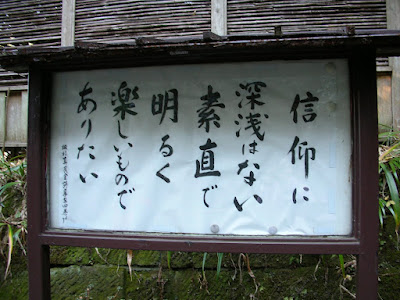 信仰に
深浅はない
素直で
明るく
楽しいもので
ありたい